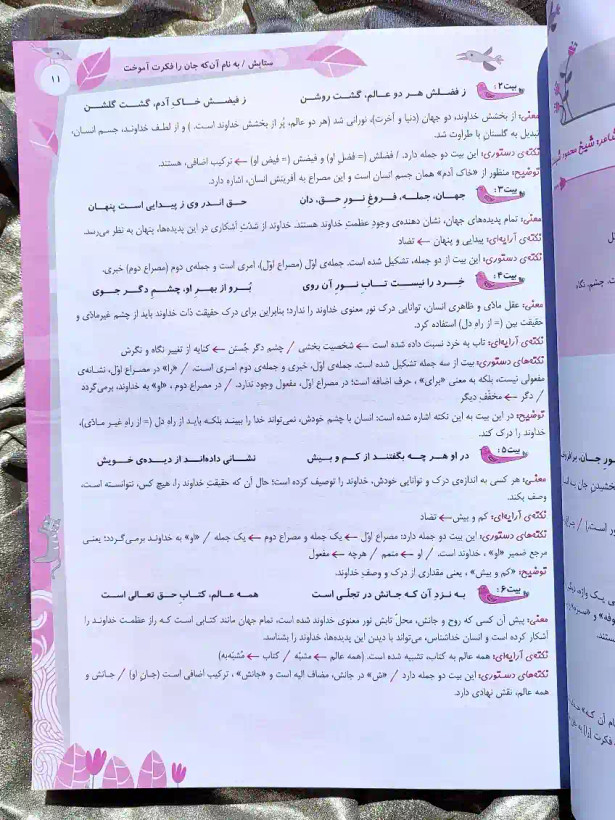 ستایش / به نام آن که جان را فکرت آموخت
۱۱
بیت۲: ز فضلش هر دو عالم، گشت روشن ز فیضش خاکِ آدم، گشت گلشن
معنی: از بخشش خداوند، دو جهان (دنیا و آخرت)، نورانی شد (هر دو عالم، پُر از بخشش خداوند است. ) و از لطف خداوند، جسم انسان،
تبدیل به گلستان با طراوت شد.
نکته‌ی دستوری: این بیت دو جمله دارد. / فضلش (= فضلِ او) و فیضش (= فیض او) ← ترکیب اضافی، هستند.
توضیح: منظور از «خاک آدم» همان جسم انسان است و این مصراع به آفرینش انسان، اشاره دارد.
بیت۳: جهان، جمله، فروغِ نورِ حق، دان حق اندر وی ز پیدایی است پنهان
معنی: تمام پدیده‌های جهان، نشان دهنده‌ی وجودِ عظمتِ خداوند هستند. خداوند از شدّتِ آشکاری در این پدیده‌ها، پنهان به نظر می‌رسد.
نکته‌ی آرایه‌ای: پیدایی و پنهان ← تضاد
نکته‌ی دستوری: این بیت از دو جمله، تشکیل شده است. جمله‌ی اوّل (مصراع اوّل)، امری است و جمله‌ی دوم (مصراع دوم) خبری.
بیت۴: خِرد را نیست تابِ نورِ آن روی بُرو از بهرِ او، چشمِ دگر جوی
معنی: عقل مادّی و ظاهری انسان، توانایی درک نور معنوی خداوند را ندارد؛ بنابراین برای درک حقیقت ذات خداوند باید از چشم غیرمادّی و
حقیقت بین (= از راه دل) استفاده کرد.
نکته‌ی آرایه‌ای: تاب به خرد نسبت داده شده است ← شخصیت بخشی / چشم دگر جُستن ← کنایه از تغییر نگاه و نگرش
نکته‌های دستوری: بیت از سه جمله تشکیل شده است. جمله‌ی اوّل، خبری و جمله‌ی دوم امری است. / «را» در مصراع اوّل، نشانه‌ی
مفعولی نیست، بلکه به معنی «برای» ، حرف اضافه است؛ در مصراع اوّل، مفعول وجود ندارد. / در مصراع دوم ، «او» به خداوند، برمی‌گردد
/ دگر ← مخفّفِ دیگر
توضیح: در این بیت به این نکته اشاره شده است: انسان با چشم خودش، نمی‌تواند خدا را ببیند بلکه باید از راه دل (= از راهِ غیر مادّی)،
خداوند را درک کند.
بیت۵: در او هر چه بگفتند از کم و بیش نشانی داده‌اند از دیده‌ی خویش
معنی: هر کسی به اندازه‌ی درک و توانایی خودش، خداوند را توصیف کرده است؛ حال آن که حقیقتِ خداوند را، هیچ کس، نتوانسته است،
وصف بکند.
نکته‌ی آرایه‌ای: کم و بیش← تضاد
نکته‌های دستوری: این بیت دو جمله دارد: مصراع اوّل← یک جمله و مصراع دوم ← یک جمله / «او» به خداوند برمی‌گردد؛ یعنی
مرجع ضمیر «او» ، خداوند است. / او ← متمم / هرچه ← مفعول
توضیح: «کم و بیش» ، یعنی مقداری از درک و وصفِ خداوند.
بیت۶: به نزدِ آن که جانش در تجلّی است همه عالم، کتابِ حق تعالی است
معنی: پیش آن کسی که روح و جانش، محلّ تابش نور معنوی خداوند شده است، تمام جهان مانند کتابی است کـه رازِ عظمت خداوند را
آشکار کرده است و انسان خداشناس، می‌تواند با دیدن این پدیده‌ها، خداوند را بشناسد.
نکته‌ی آرایه‌ای: همه عالم به کتاب، تشبیه شده است. (همه عالم ← مشبّه / کتاب ← مُشبّه‌به)
نکته‌های دستوری: این بیت دو جمله دارد / «ش» در جانش، مضاف الیه است و «جانش» ، ترکیب اضافی است (جانِ او) / جانش و
همه عالم، نقش نهادی دارد.